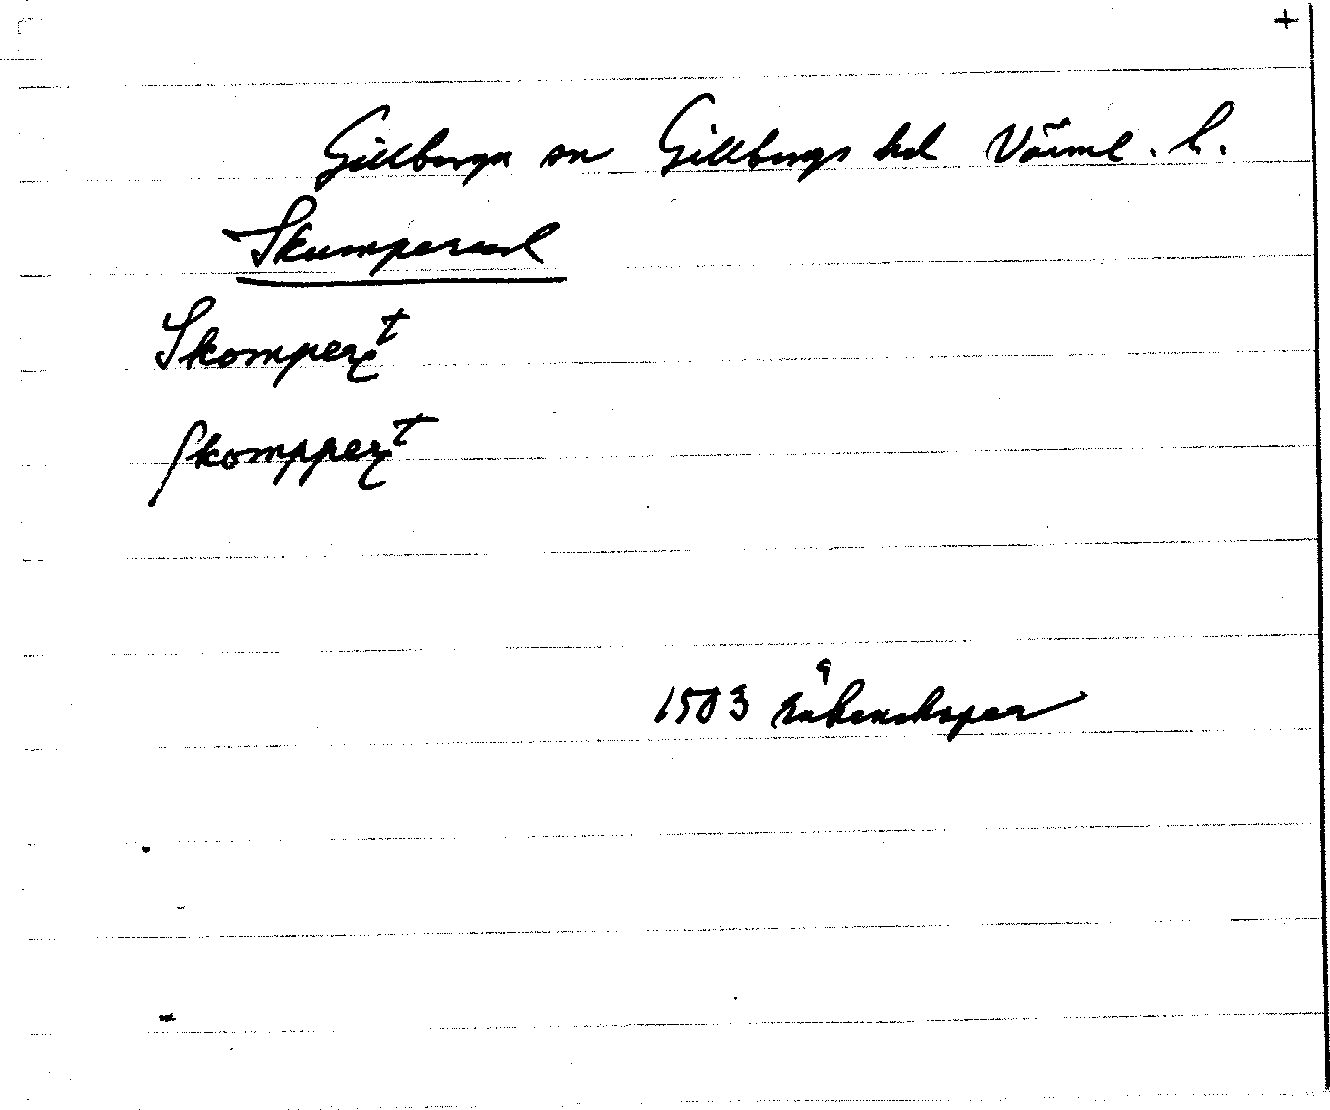 +
Gillberga sn Gillbergs hd Värml. l.
Skumperud
Skomper t
Skompper t
1503 räkenskaper